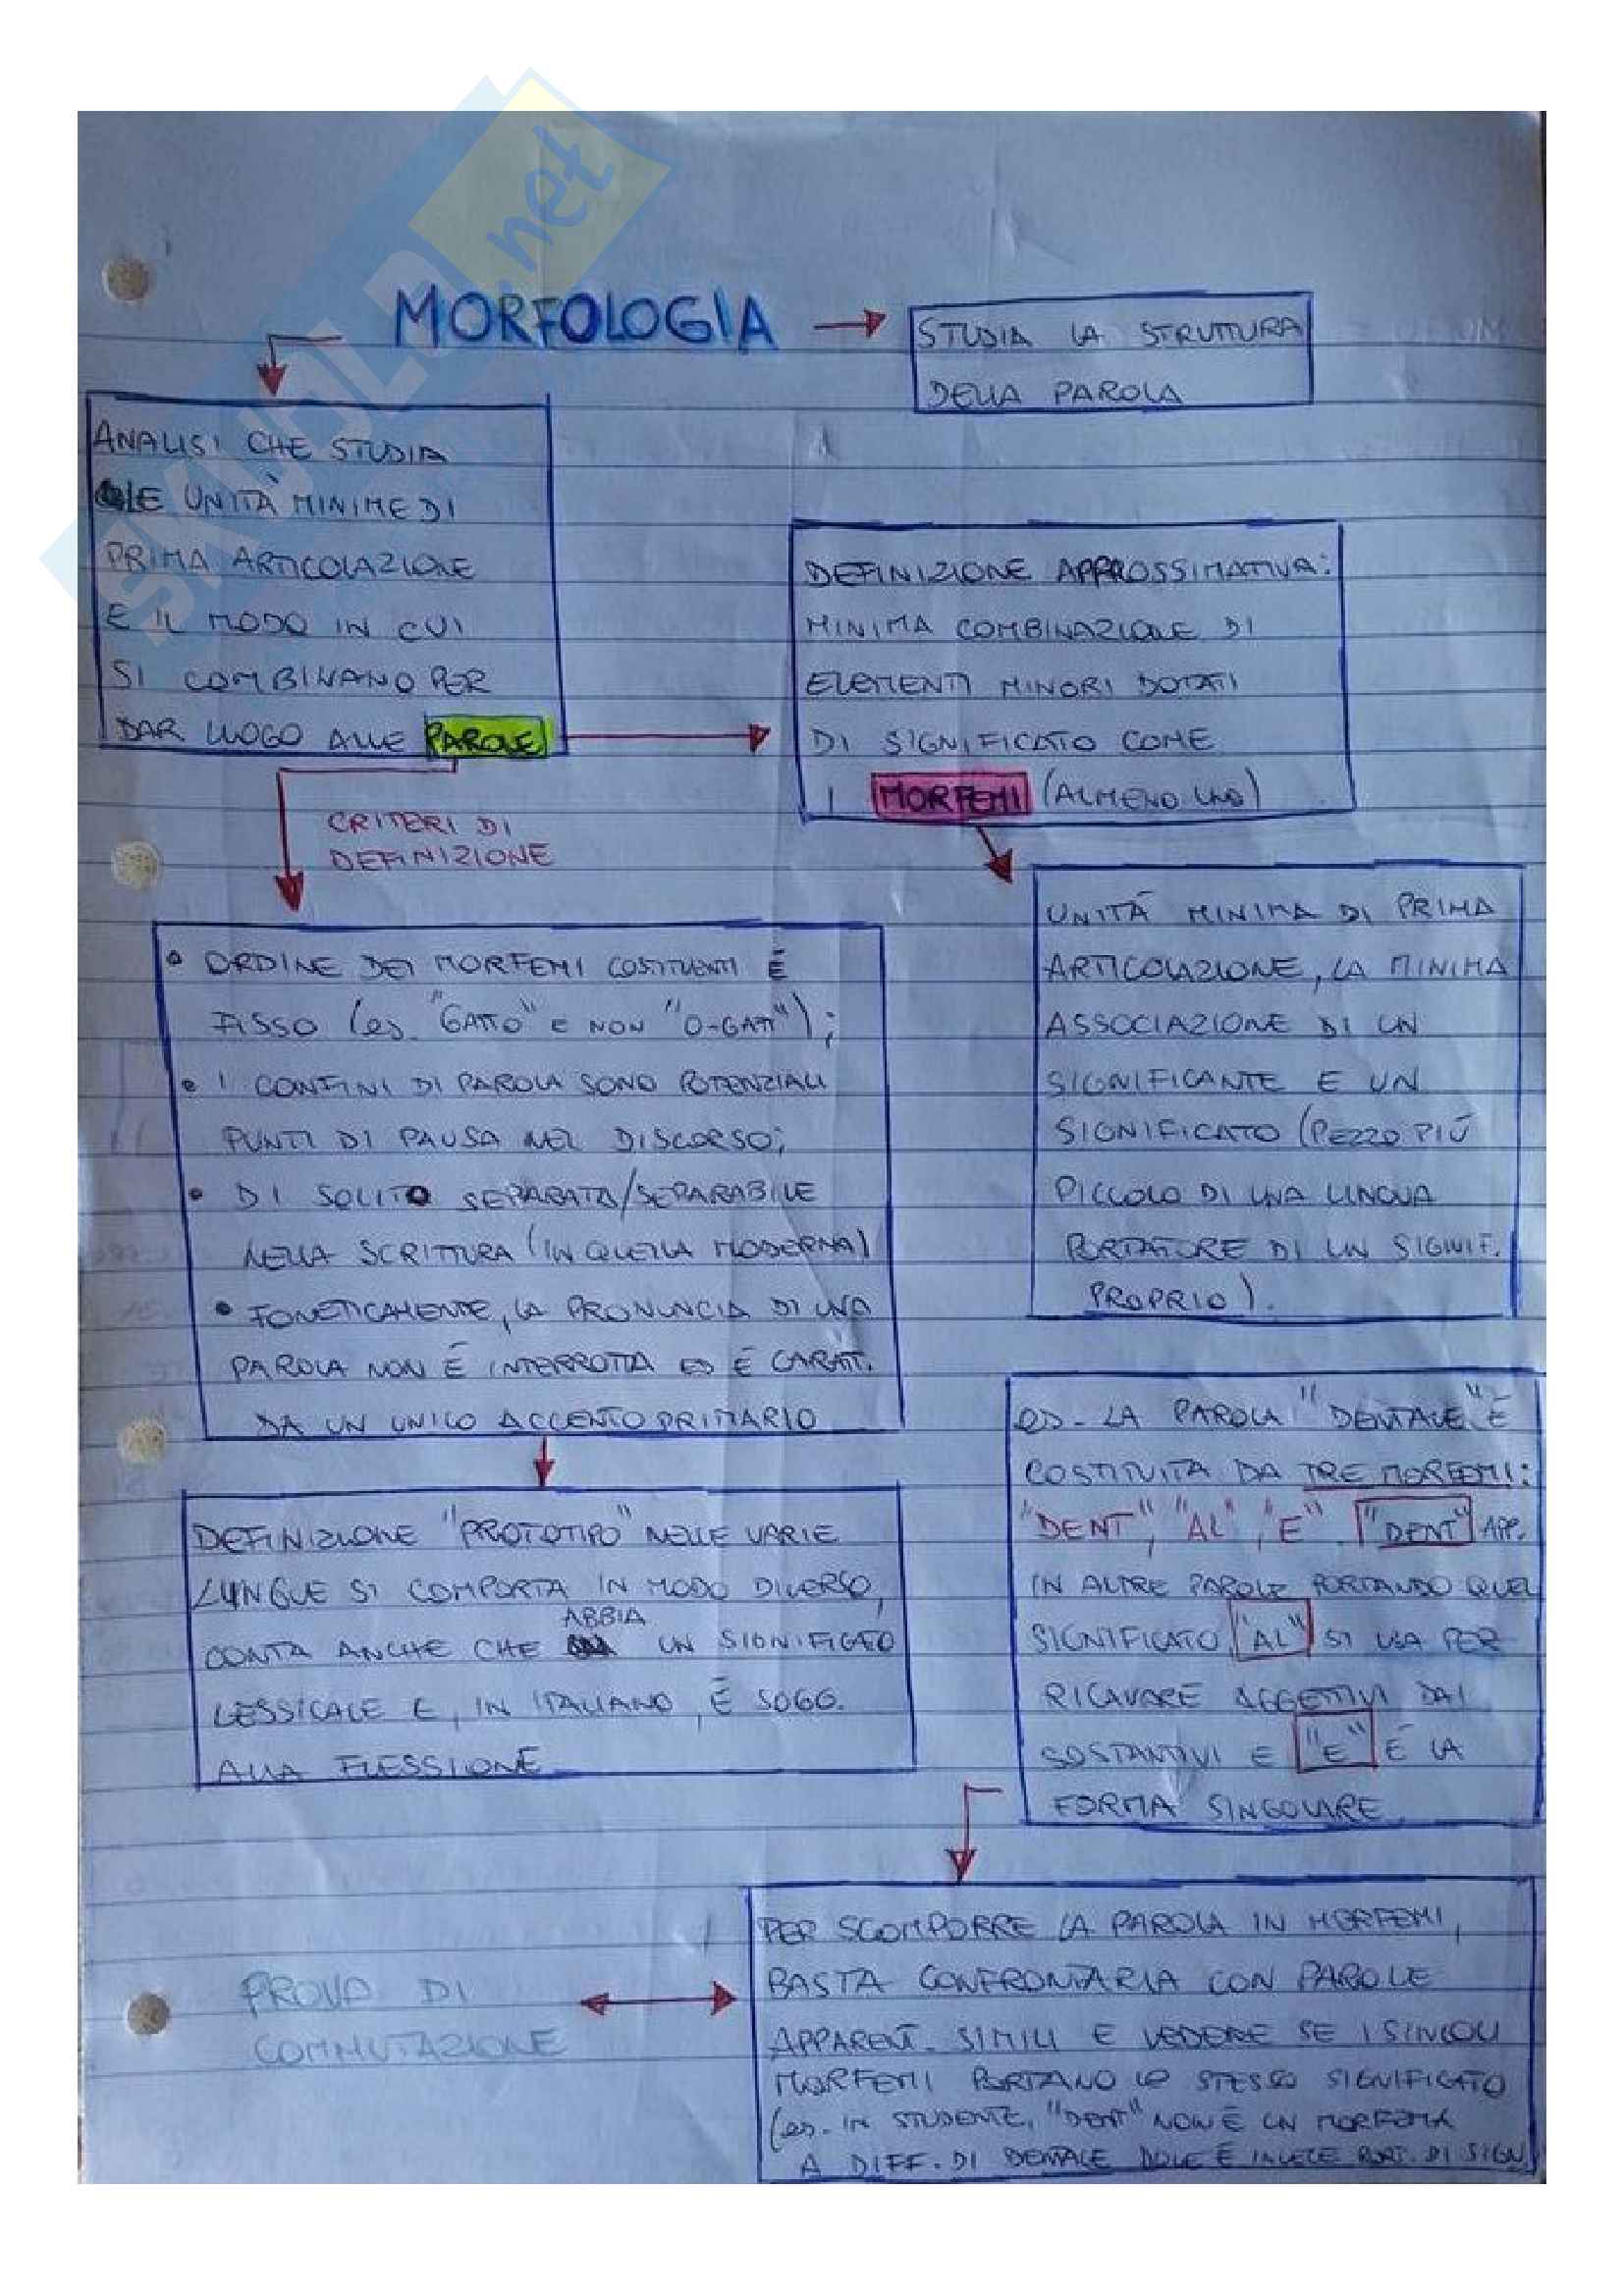 SKUOLA.net
MORFOLOGIA
STUDIA LA STRUTTURA
DELLA PAROLA
ANALISI CHE STUDIA
LE UNITÀ MINIME DI
PRIMA ARTICOLAZIONE
E IL MODO IN CUI
SI COMBINANO PER
DAR LUOGO ALLE PAROLE
DEFINIZIONE APPROSSIMATIVA:
MINIMA COMBINAZIONE DI
ELEMENTI MINORI DOTATI
DI SIGNIFICATO COME
I MORFEMI (ALMENO UNO)
CRITERI DI
DEFINIZIONE
UNITÀ MINIMA DI PRIMA
ARTICOLAZIONE, LA MINIMA
ASSOCIAZIONE DI UN
SIGNIFICANTE E UN
SIGNIFICATO (PEZZO PIÙ
PICCOLO DI UNA LINGUA
PORTATORE DI UN SIGNIF.
PROPRIO).
• ORDINE DEI MORFEMI COSTITUENTI È
FISSO (es. "GATTO" E NON "O-GATT");
• I CONFINI DI PAROLA SONO POTENZIALI
PUNTI DI PAUSA NEL DISCORSO;
• DI SOLITO SEPARATA/SEPARABILE
NELLA SCRITTURA (IN QUELLA MODERNA)
• FONETICAMENTE, LA PRONUNCIA DI UNA
PAROLA NON È INTERROTTA ED È CARATT.
DA UN UNICO ACCENTO PRIMARIO
DEFINIZIONE "PROTOTIPO" NELLE VARIE
LINGUE SI COMPORTA IN MODO DIVERSO,
CONTA ANCHE CHE ABBIA UN SIGNIFICATO
LESSICALE E, IN ITALIANO, È SOGG.
ALLA FLESSIONE
es. LA PAROLA "DENTALE" È
COSTITUITA DA TRE MORFEMI:
"DENT", "AL", "E". "DENT" APP.
IN ALTRE PAROLE PORTANDO QUEL
SIGNIFICATO, "AL" SI USA PER
RICAVARE AGGETTIVI DAI
SOSTANTIVI E "E" È LA
FORMA SINGOLARE
PER SCOMPORRE LA PAROLA IN MORFEMI,
BASTA CONFRONTARLA CON PAROLE
APPARENT. SIMILI E VEDERE SE I SINGOLI
MORFEMI PORTANO LO STESSO SIGNIFICATO
(es. IN STUDENTE, "DENT" NON È UN MORFEMA
A DIFF. DI DENTALE DOVE È INVECE PORT. DI SIGN.
PROVA DI
COMMUTAZIONE